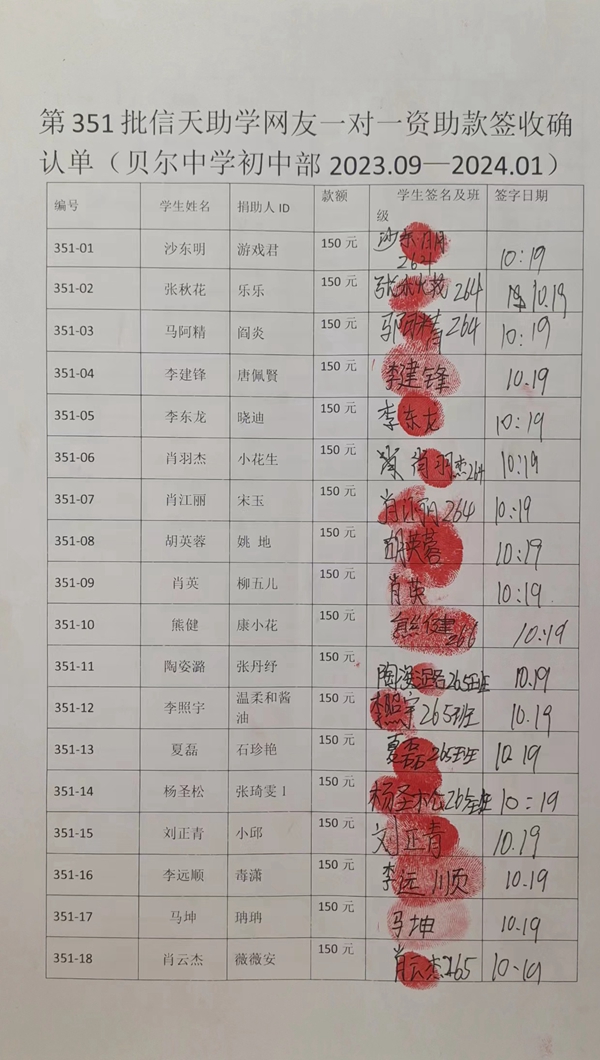 第 351 批信天助学网友一对一资助款签收确
认单（贝尔中学初中部 2023.09—2024.01）
编号 学生姓名 捐助人 ID 款额 学生签名及班级 签字日期
351-01 沙东明 游戏君 150 元 沙东明 264 10:19
351-02 张秋花 乐乐 150 元 张秋花 264 10.19
351-03 马阿精 阎炎 150 元 马阿精 264 10:19
351-04 李建锋 唐佩賢 150 元 李建锋 10.19
351-05 李东龙 晓迪 150 元 李东龙 10:19
351-06 肖羽杰 小花生 150 元 肖羽杰 264 10:19
351-07 肖江丽 宋玉 150 元 肖江丽 264 10:19
351-08 胡英蓉 姚 地 150 元 胡英蓉 10:19
351-09 肖英 柳五儿 150 元 肖英 10:19
351-10 熊健 康小花 150 元 熊健 266 10:19
351-11 陶姿潞 张丹纾 150 元 陶姿潞 265班 10.19
351-12 李照宇 温柔和酱油 150 元 李照宇 265班 10.19
351-13 夏磊 石珍艳 150 元 夏磊 265班 10.19
351-14 杨圣松 张琦雯 1 150 元 杨圣松 265班 10:19
351-15 刘正青 小邱 150 元 刘正青 10.19
351-16 李远顺 毒潇 150 元 李远顺 10.19
351-17 马坤 珃珃 150 元 马坤 10.19
351-18 肖云杰 薇薇安 150 元 肖云杰 265 10-19